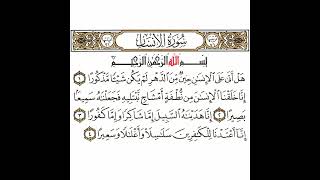 سُورَةُ الْإِنسَانِ
بِسْمِ اللَّهِ الرَّحْمَٰنِ الرَّحِيمِ
هَلْ أَتَىٰ عَلَى الْإِنسَٰنِ حِينٌ مِّنَ الدَّهْرِ لَمْ يَكُن شَيْـًٔا مَّذْكُورًا ١
إِنَّا خَلَقْنَا الْإِنسَٰنَ مِن نُّطْفَةٍ أَمْشَاجٍ نَّبْتَلِيهِ فَجَعَلْنَٰهُ سَمِيعًۢا
بَصِيرًا ٢ إِنَّا هَدَيْنَٰهُ السَّبِيلَ إِمَّا شَاكِرًا وَإِمَّا كَفُورًا ٣
إِنَّآ أَعْتَدْنَا لِلْكَٰفِرِينَ سَلَٰسِلَا۟ وَأَغْلَٰلًا وَسَعِيرًا ٤